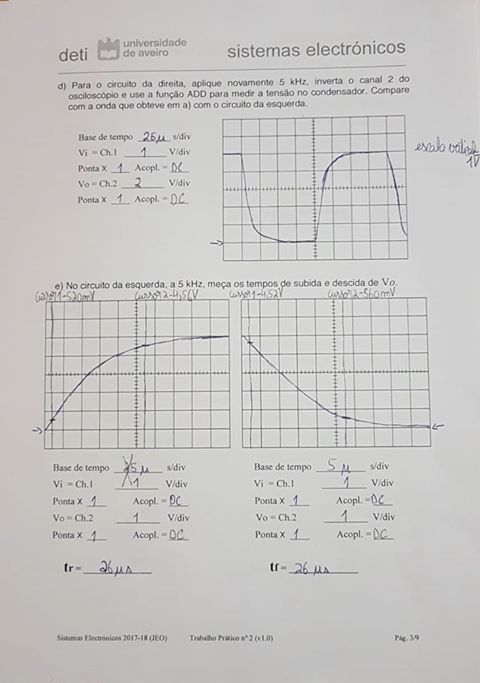 deti universidade de aveiro sistemas electrónicos
d) Para o circuito da direita, aplique novamente 5 kHz, inverta o canal 2 do
osciloscópio e use a função ADD para medir a tensão no condensador. Compare
com a onda que obteve em a) com o circuito da esquerda.
Base de tempo 25µ s/div
Vi = Ch.1 1 V/div
Ponta X 1 Acopl. = DC
Vo = Ch.2 2 V/div
Ponta X 1 Acopl. = DC
escala vertical
1V
e) No circuito da esquerda, a 5 kHz, meça os tempos de subida e descida de Vo.
Cursor1-520mV Cursor2-4,56V Cursor1-4,52V Cursor2-560mV
Base de tempo 5µ s/div
Vi = Ch.1 1 V/div
Ponta X 1 Acopl. = DC
Vo = Ch.2 1 V/div
Ponta X 1 Acopl. = DC
tr = 26µs
Base de tempo 5µ s/div
Vi = Ch.1 1 V/div
Ponta X 1 Acopl. = DC
Vo = Ch.2 1 V/div
Ponta X 1 Acopl. = DC
tf = 26µs
Sistemas Electrónicos 2017-18 (JEO) Trabalho Prático nº 2 (v1.0) Pág. 3/9